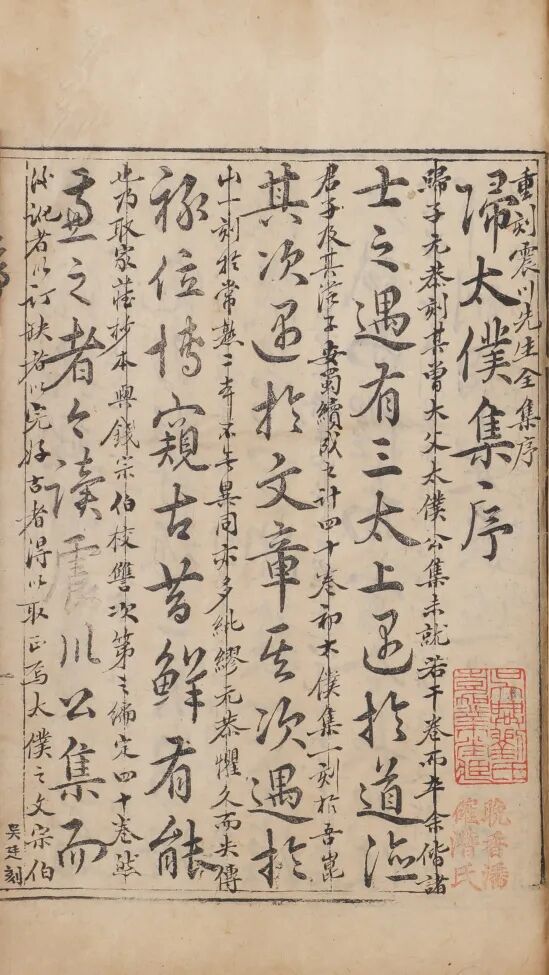 重刻震川先生全集序
歸太僕集序
歸子元恭刻其曾大父太僕公集未就若干卷而卒余偕諸
士之遇有三太上遇於道德
君子及其從子安蜀續成之計四十卷初太僕集一刻於吾崑
其次遇於文章其次遇於
山一刻於常熟二本不無異同亦多紕繆元恭懼久而失傳
祿位博窺古昔鮮有能
也乃取家藏抄本與錢宗伯校讐次第之編定四十卷然
兼之者今讀震川公集而
後訛者以訂缺者以完好古者得以取正焉太僕之文宗伯
吳廷刻